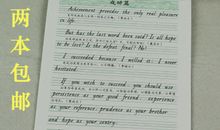 两本包邮
成功篇
Achievement provides the only real pleasure
in life.
But has the last word been said? Is all hope
to be lost? Is the defeat final? No!
I succeeded because I willed it; I never
hesitated.
If you wish to succeed, you should use
persistence as your good friend, experience
as your reference, prudence as your brother
and hope as your sentry.